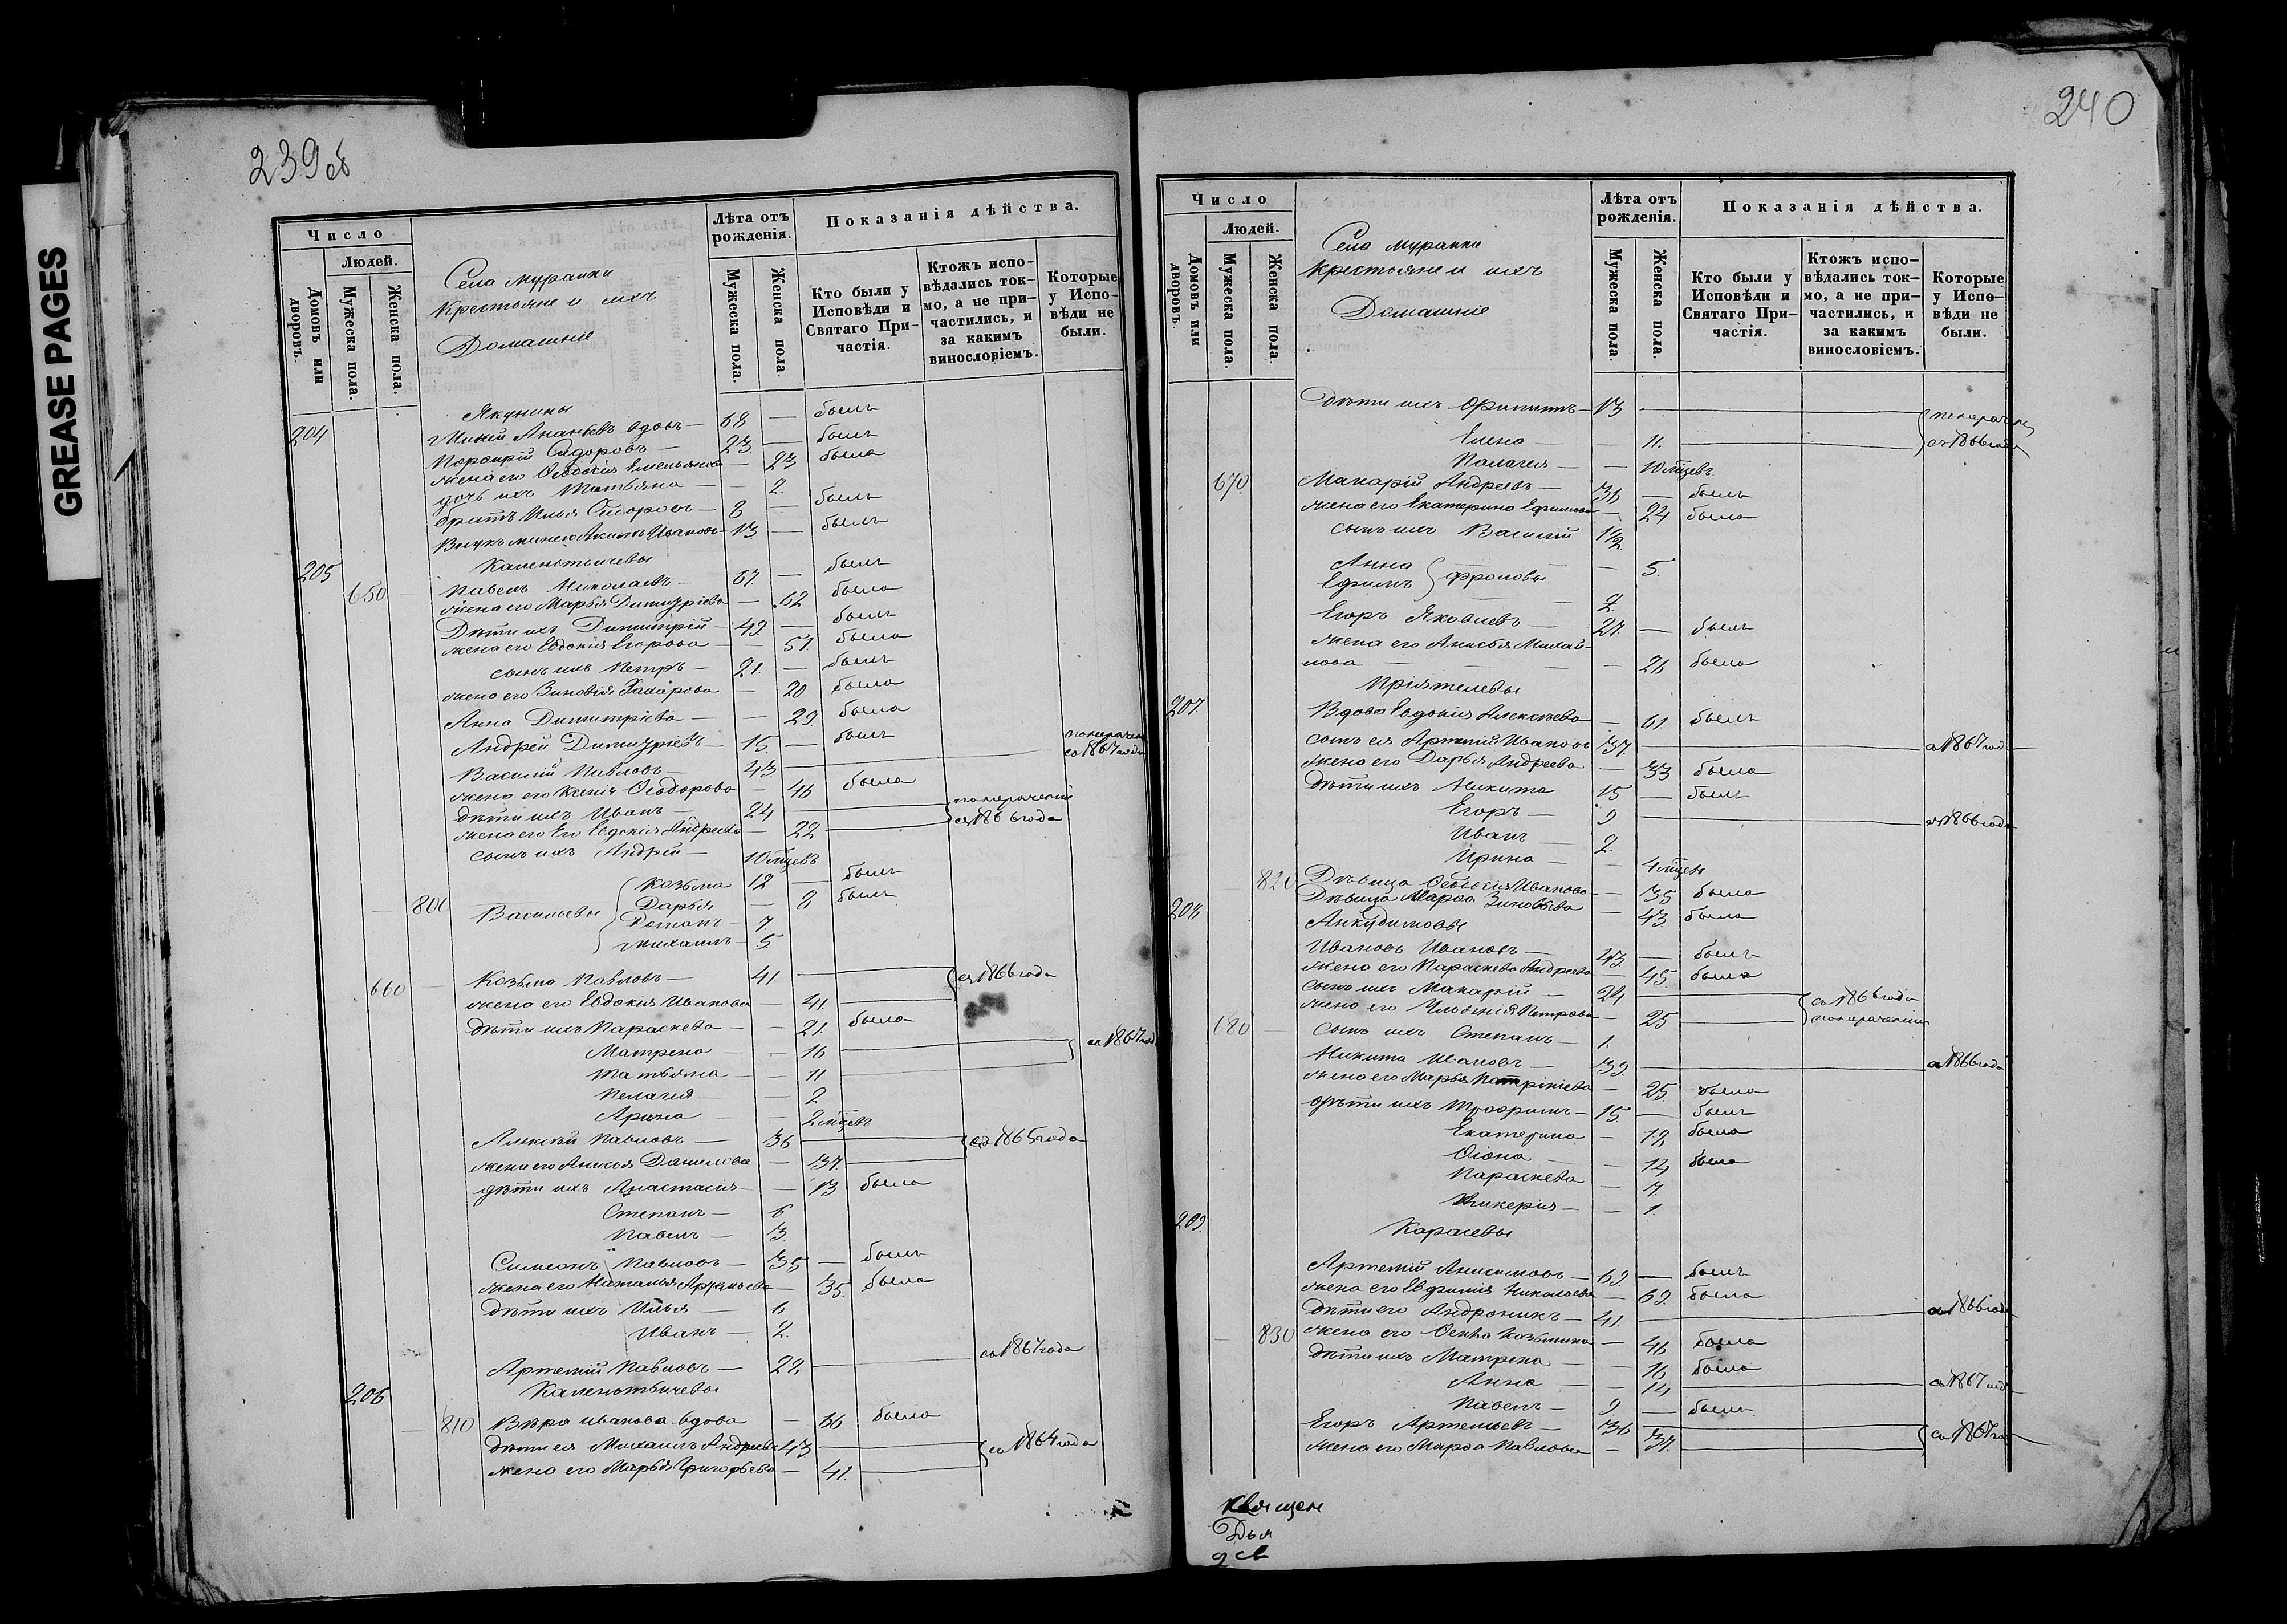 GREASE PAGES
239об
Число
Людей.
Домовъ или дворовъ.
Мужеска пола.
Женска пола.
Села Муранки
Крестьяне и ихъ
Домашніе
Лѣта отъ рожденія.
Мужеска пола.
Женска пола.
Показанія дѣйства.
Кто были у Исповѣди и Святаго Причастія.
Ктожъ исповѣдались токмо, а не причастились, и за какимъ винословіемъ.
Которые у Исповѣди не были.
Якунины
204 Ананьевъ вдовъ — 68 — былъ
Порфирій Сидоровъ — 23 — былъ
жена его Ѳеодосія Емельянова — 23 была
дочь ихъ Татьяна — — 2.
братъ Илья Сидоровъ — 8 — былъ
Внукъ Акимъ Ивановъ — 13 — былъ
205 Каленьтьичевы
650 Павелъ Николаевъ — 67. — былъ
жена его Марья Димитріева — 62 была
Дѣти ихъ Димитрій — 49. — былъ
жена его Евдокія Егорова — — 51. была
сынъ ихъ Петръ — 21. — былъ
жена его Зиновія Захарова — 20 была
Анна Димитріева — — 29 была
Андрей Димитріевъ — 15 — былъ
Василій Павловъ — 43 со 1867 года
жена его Ксенія Ѳеодорова — 46 была
дѣти ихъ Иванъ — 24
жена его Евдокія Андреева — 22 съ 1866 года
сынъ ихъ Андрей — 10 мѣцевъ
Козьма 12 — былъ
800 Васильевы Дарья — 8 былъ
Романъ — 7.
Михаилъ — 5
660 Козьма Павловъ — 41 съ 1866 года
жена его Евдокія Иванова — 41.
дѣти ихъ Параскева — — 21. была
Матрена — — 16 со 1867 года
Татьяна — — 11
Пелагея — — 9
Арина — — 2 мѣцевъ
Алексѣй Павловъ — 36 съ 1865 года
жена его Анисья Данилова — 37.
дѣти ихъ Анастасія — — 13 была
Степанъ — 6
Павелъ — 3
Симеонъ Павловъ — 35 — былъ
жена его Наталья Артемьева — 35. была
дѣти ихъ Илья — 6
Иванъ — 2.
Артемій Павловъ — 22 со 1867 года
206 Каленьтьичевы
810 Вѣра Иванова вдова — 66 была
дѣти ея Михаилъ Андреевъ 43 со 1864 года
жена его Марья Григорьева — 41.
240
Число
Людей.
Домовъ или дворовъ.
Мужеска пола.
Женска пола.
Села Муранки
Крестьяне и ихъ
Домашніе
Лѣта отъ рожденія.
Мужеска пола.
Женска пола.
Показанія дѣйства.
Кто были у Исповѣди и Святаго Причастія.
Ктожъ исповѣдались токмо, а не причастились, и за какимъ винословіемъ.
Которые у Исповѣди не были.
Дѣти ихъ — 13
Елена — — 11. съ 1866 года
Палагея — — 10 мѣцевъ.
670. Макарій Андреевъ — 36 — былъ
жена его Екатерина Ефимова — 24 была
сынъ ихъ Василій 1½
Анна — 5.
Ефимъ Фроловы — 2.
Егоръ Яковлевъ — 27. — былъ
жена его Анисья Михай-
лова — — 26 была
Пріятелевы
207. Вдова Евдокія Алексѣева — 61 былъ
сынъ ея Артемій Ивановъ 37. съ 1867 год
жена его Дарья Андреева — 33 была
дѣти ихъ Никита 15 — былъ
Егоръ — 9 съ 1866 года
Иванъ — 2.
Ирина — — 4 мѣцев
820 Дѣвица Ѳеодосія Иванова — 35 была
208 Дѣвица Марѳа Зиновьева — 43. была
Анкудимовы
Ивановъ Ивановъ — 43. — былъ
жена его Параскева Андреева — 45. была
сынъ ихъ Макарій — 24 съ 1866 года
жена его Петрова — 25
680 сынъ ихъ Степанъ — 1.
Никита Ивановъ — 39. съ 1866 года
жена его Марья Патрікіева — 25. была
дѣти ихъ Трофимъ — 15. — былъ
Екатерина — 18 была
— 14 была
Параскева — 7.
Гликерія — — 1.
209. Карасевы
Артемій Анисимовъ — 69. — былъ
жена его Евфимія Николаева — 69. была
дѣти его Андроникъ — 41. съ 1866 года
830 жена его Козьмина — 46 была
дѣти ихъ Матрена — — 16 была
Анна — — 14 съ 1867 год
Павелъ — 9 — былъ
Егоръ Артемьевъ — 36 съ 1867 го
жена его Марѳа Павлова — 37.